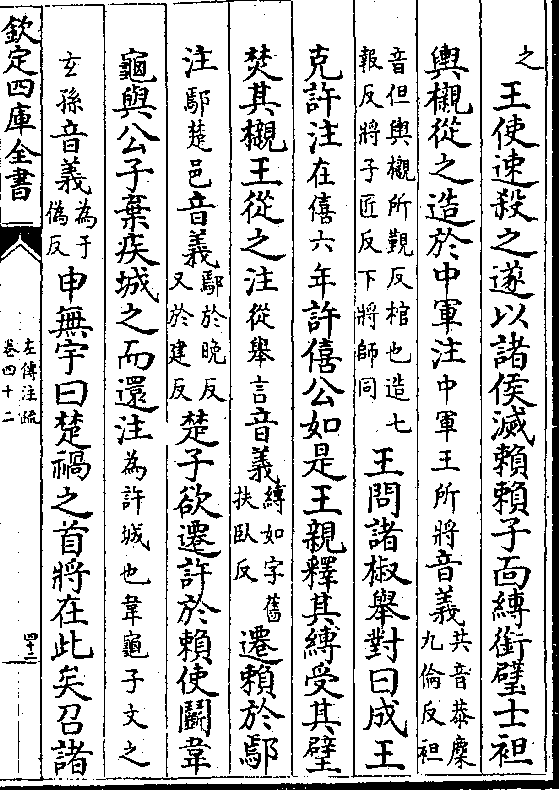 之王使速殺之遂以諸侯滅賴賴子面縛銜璧士袒
輿櫬從之造於中軍注中軍王所將音義共音恭麇九倫反袒
音但輿櫬所覲反棺也造七報反將子匠反下將師同王問諸椒舉對曰成王
克許注在僖六年許僖公如是王親釋其縛受其璧
焚其櫬王從之注從舉言音義縛如字舊扶臥反遷賴於鄢
注鄢楚邑音義鄢於晚反又於建反楚子欲遷許於賴使鬭韋
龜與公子棄疾城之而還注為許城也韋龜子文之
玄孫音義為于偽反申無宇曰楚禍之首將在此矣召諸
欽定四庫全書
左傳注疏
卷四十二
四十二